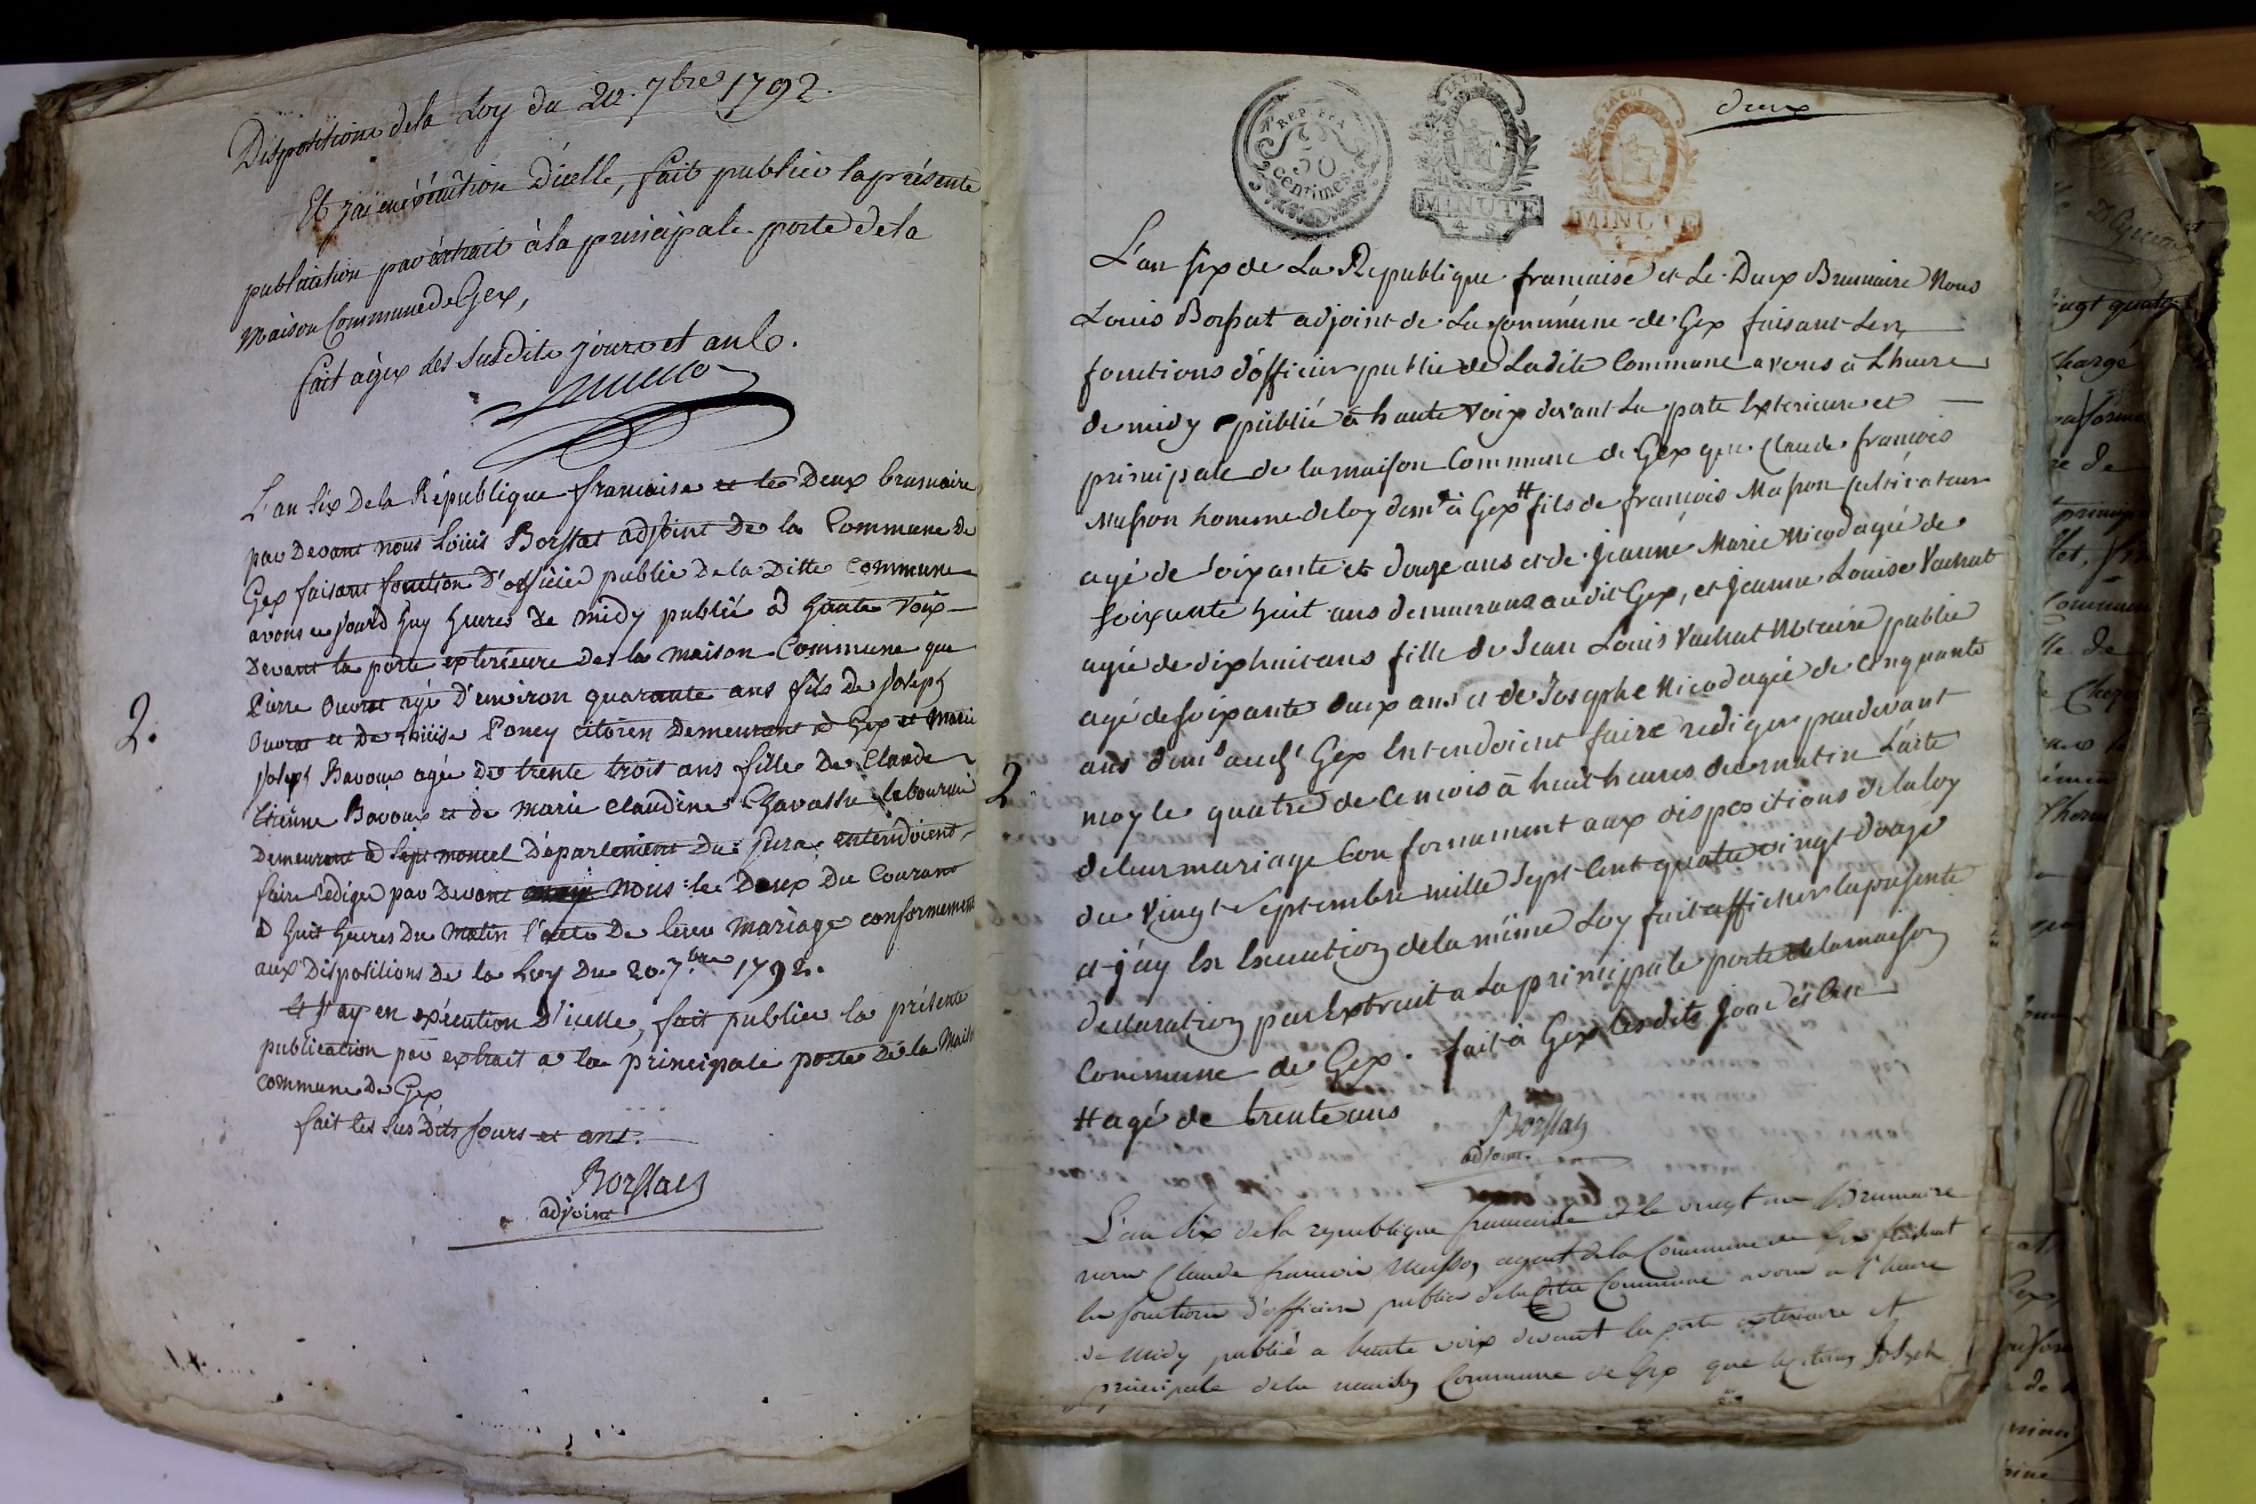 Dispositions de la Loy du 20. 7bre 1792.
Et j'ai en éxécution d'icelle, fait publier la présente
publication par extrait à la principale porte de la
maison Commune de Gex,
fait à gex les susdits jours et ans.
L'an Six De la République francaise et le Deux brumaire
par Devant nous Loüis Borssat adjoint De la Commune De
Gex faisant fonction D'officier public De la Ditte commune
avons ce jourd'huy heures de midy publié à haute voix
Devant la porte exterieure de la maison Commune que
Pierre Ouvrat agé D'environ quarante ans fils De Joseph
Ouvrat et De Poncy citoien Demeurant à Gex et Marie
Joseph Bavoux agée De trente trois ans fille De Claude
Etienne Bavoux et de marie claudine Chavassu
Demeurant à Sept moncel Département Du Jura entendoient
faire rediger par Devant nous le Deux Du Courant
à huit heures Du matin l'acte De leur mariage conformement
aux Dispositions De la Loy Du 20. 7bre 1792.
Et J'ay en exécution D'icelle, fait publier la présente
publication par extrait a la principale porte De la Maison
commune De Gex
fait les Sus Dits Jours et ans.
Borssat
adjoint
2.
deux
REP. FRA.
50
centimes.
LA LOI
MINUTE
4 S
LA LOI
MINUTE
L'an six de La Republique francaise et Le Deux Brumaire Nous
Louis Borssat adjoint de La Commune de Gex faisant Les
fonctions d'officier public de Ladite Commune avons à L'heure
de midy publié à haute voix devant La porte Exterieure et
principale de la maison Commune de Gex que Claude françois
Masson homme de loy demt à Gex # fils de françois Masson Cultivateur
agé de soixante et douze ans et de Jeanne Marie Nicod agée de
soixante huit ans demeurans audit Gex, et Jeanne Louise Vachat
agée de dix huit ans fille de Jean Louis Vachat Notaire public
agé de soixante deux ans et de Josephe Nicod agée de Cinquante
ans dems audt Gex Entendoient faire rediger pardevant
moy le quatre de Ce mois à huit heures du matin L'acte
de leur mariage Conformement aux dispositions de la loy
du Vingt Septembre mille Sept Cent quatre vingt douze
et j'ay En Execution de la même Loy fait afficher la presente
declaration par Extrait a La principale porte de la maison
Commune de Gex. fait à Gex Les dits Jour et an
# agé de trente ans
Borssat
adjoint
2
L'an Six de la republique francaise et le vingt un Brumaire
nous Claude francois Masson agent de la Commune de Gex faisant
les fonctions d'officier public de la ditte Commune avons a l'heure
de midy publié a haute voix devant la porte exterieure et
principale de la maison Commune de Gex que le citoyen Joseph